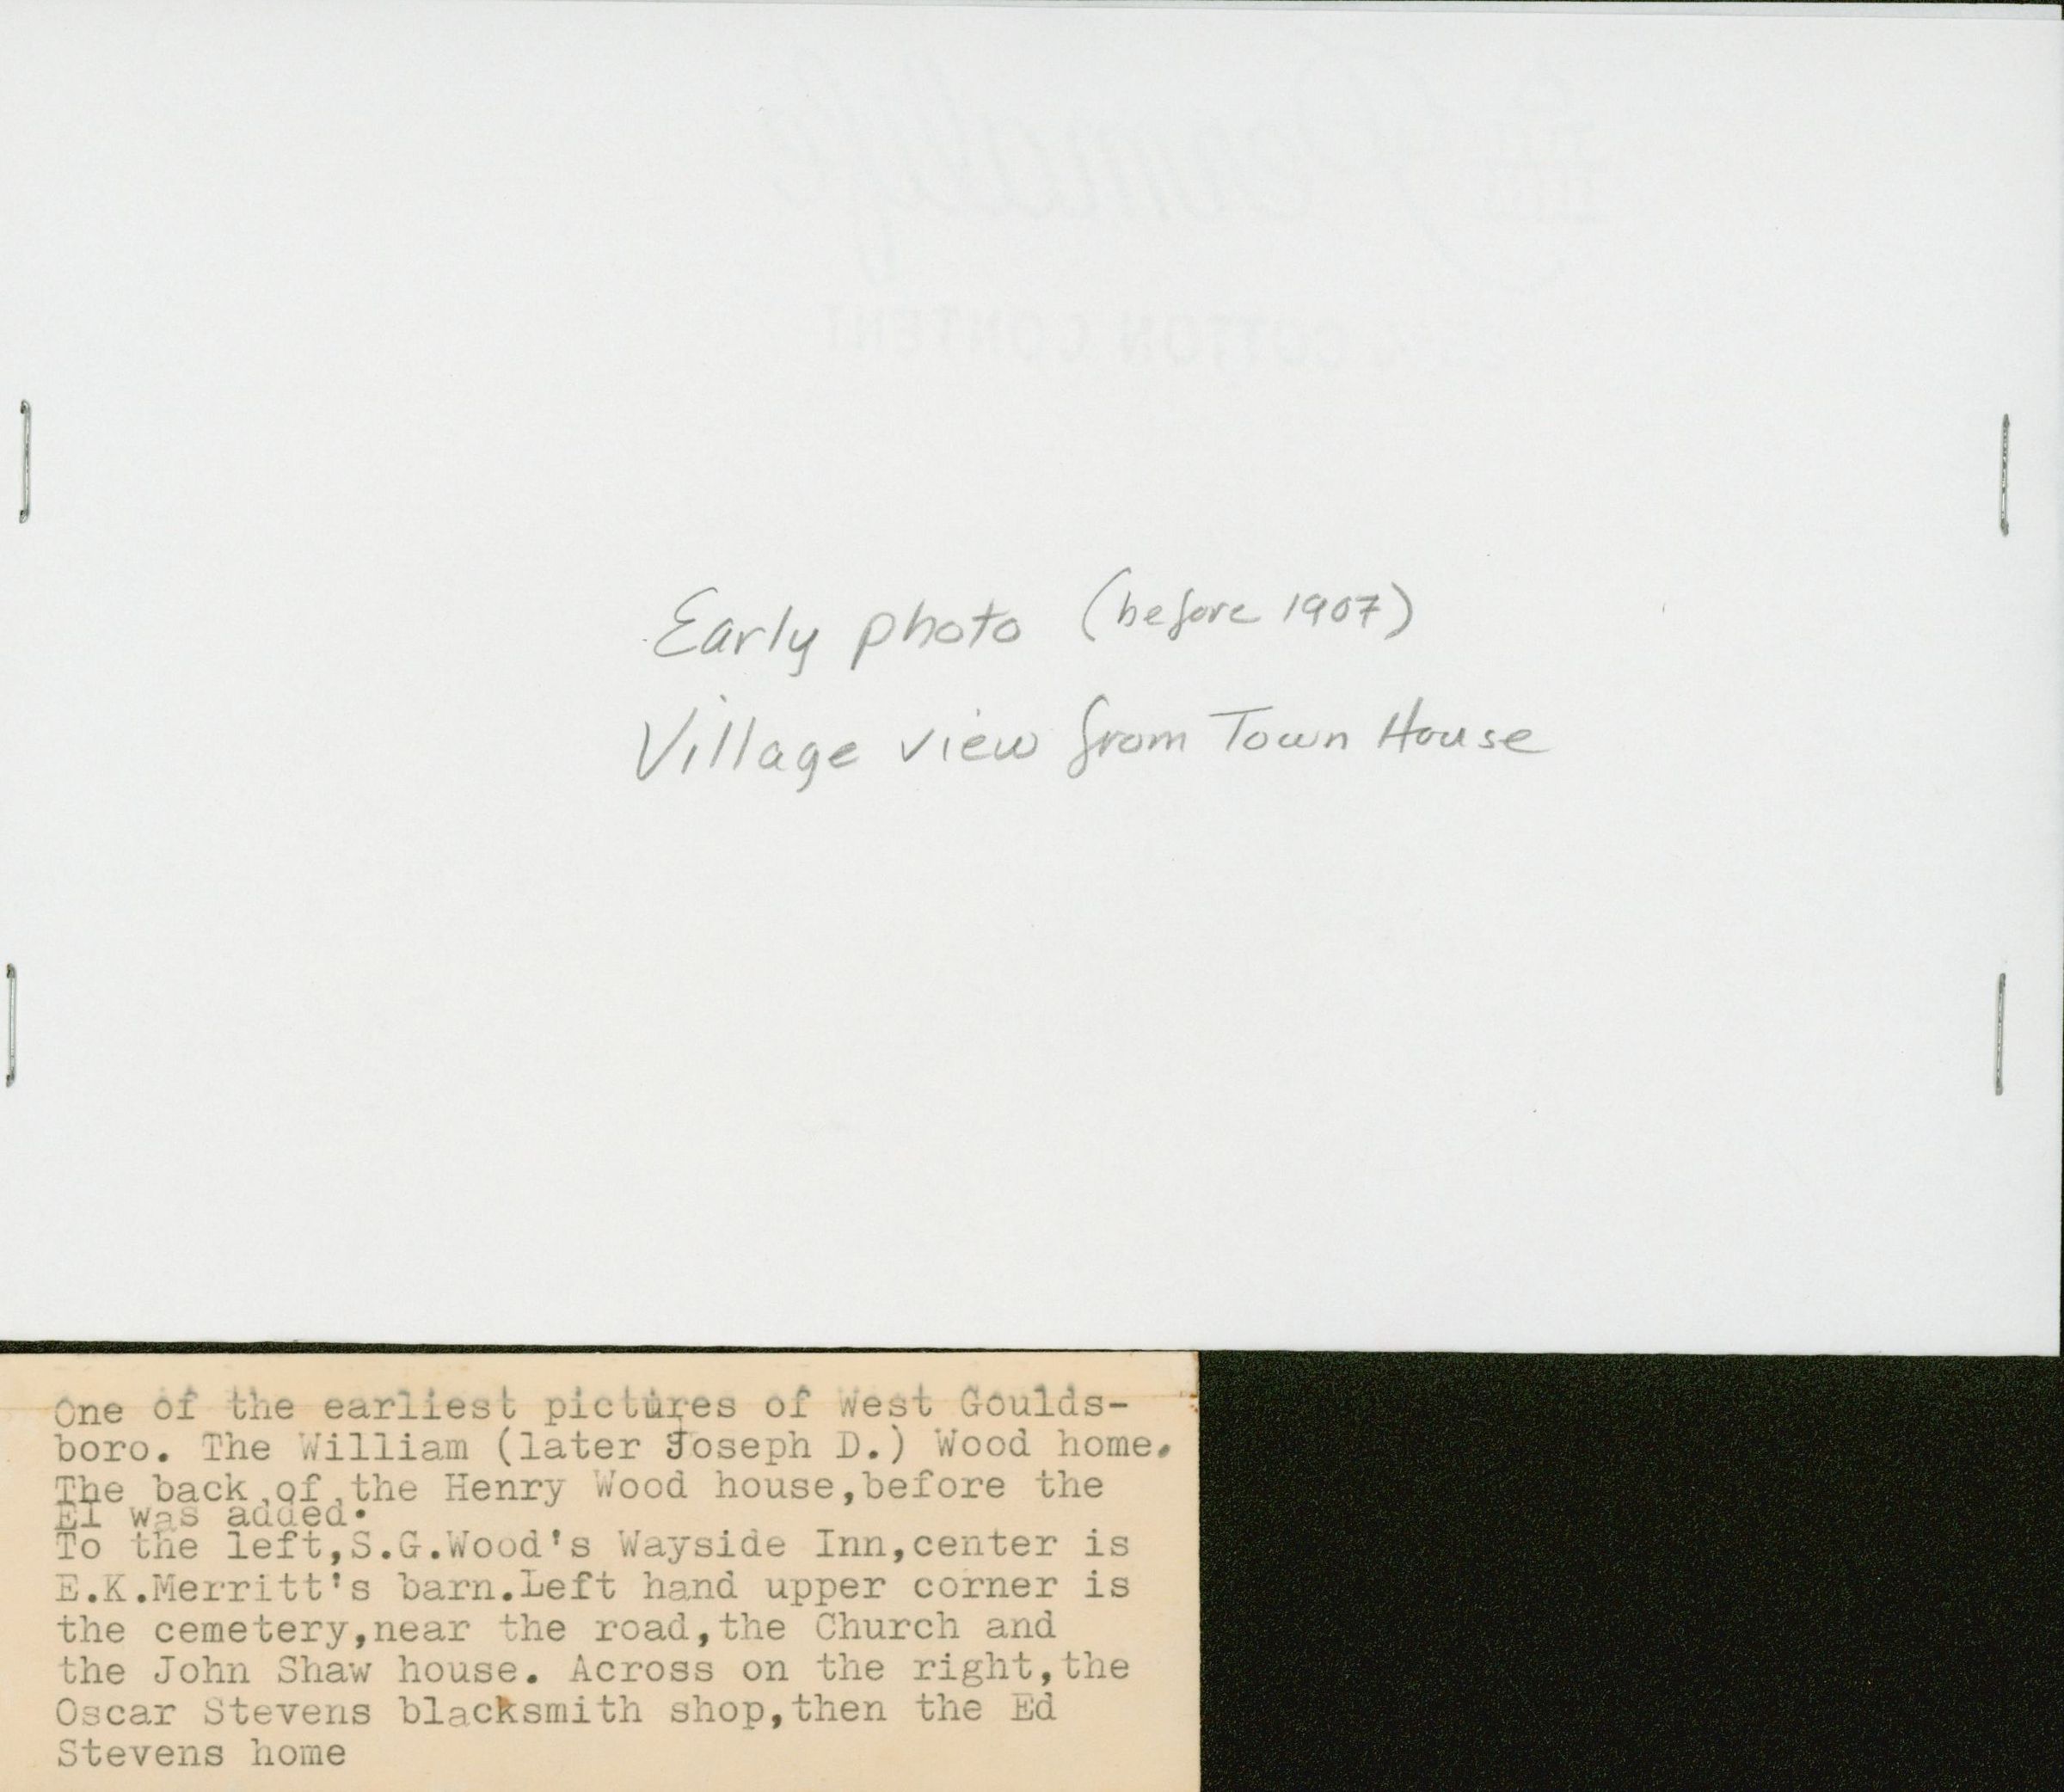 Early photo (before 1907)
Village view from Town House
One of the earliest pictures of West Goulds-
boro. The William (later Joseph D.) Wood home.
The back of the Henry Wood house,before the
El was added.
To the left,S.G.Wood's Wayside Inn,center is
E.K.Merritt's barn.Left hand upper corner is
the cemetery,near the road,the Church and
the John Shaw house. Across on the right,the
Oscar Stevens blacksmith shop,then the Ed
Stevens home
COTTON CONTENT